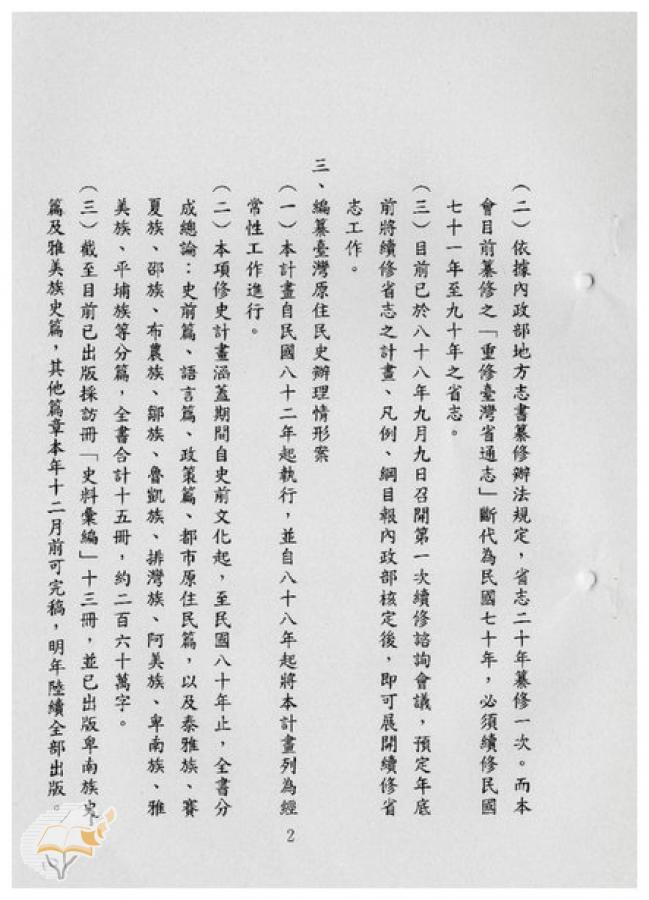 (二)依據內政部地方志書纂修辦法規定，省志二十年纂修一次。而本
會目前纂修之「重修臺灣省通志」斷代為民國七十年，必須續修民國
七十一年至九十年之省志。
(三)目前已於八十八年九月九日召開第一次續修諮詢會議，預定年底
前將續修省志之計畫、凡例、綱目報內政部核定後，即可展開續修省
志工作。
三、編纂臺灣原住民史辦理情形案
(一)本計畫自民國八十二年起執行，並自八十八年起將本計畫列為經
常性工作進行。
(二)本項修史計畫涵蓋期間自史前文化起，至民國八十年止，全書分
成總論：史前篇、語言篇、政策篇、都市原住民篇，以及泰雅族、賽
夏族、邵族、布農族、鄒族、魯凱族、排灣族、阿美族、卑南族、雅
美族、平埔族等分篇，全書合計十五冊，約二百六十萬字。
(三)截至目前已出版採訪冊「史料彙編」十三冊，並已出版卑南族史
篇及雅美族史篇，其他篇章本年十二月前可完稿，明年陸續全部出版。
2